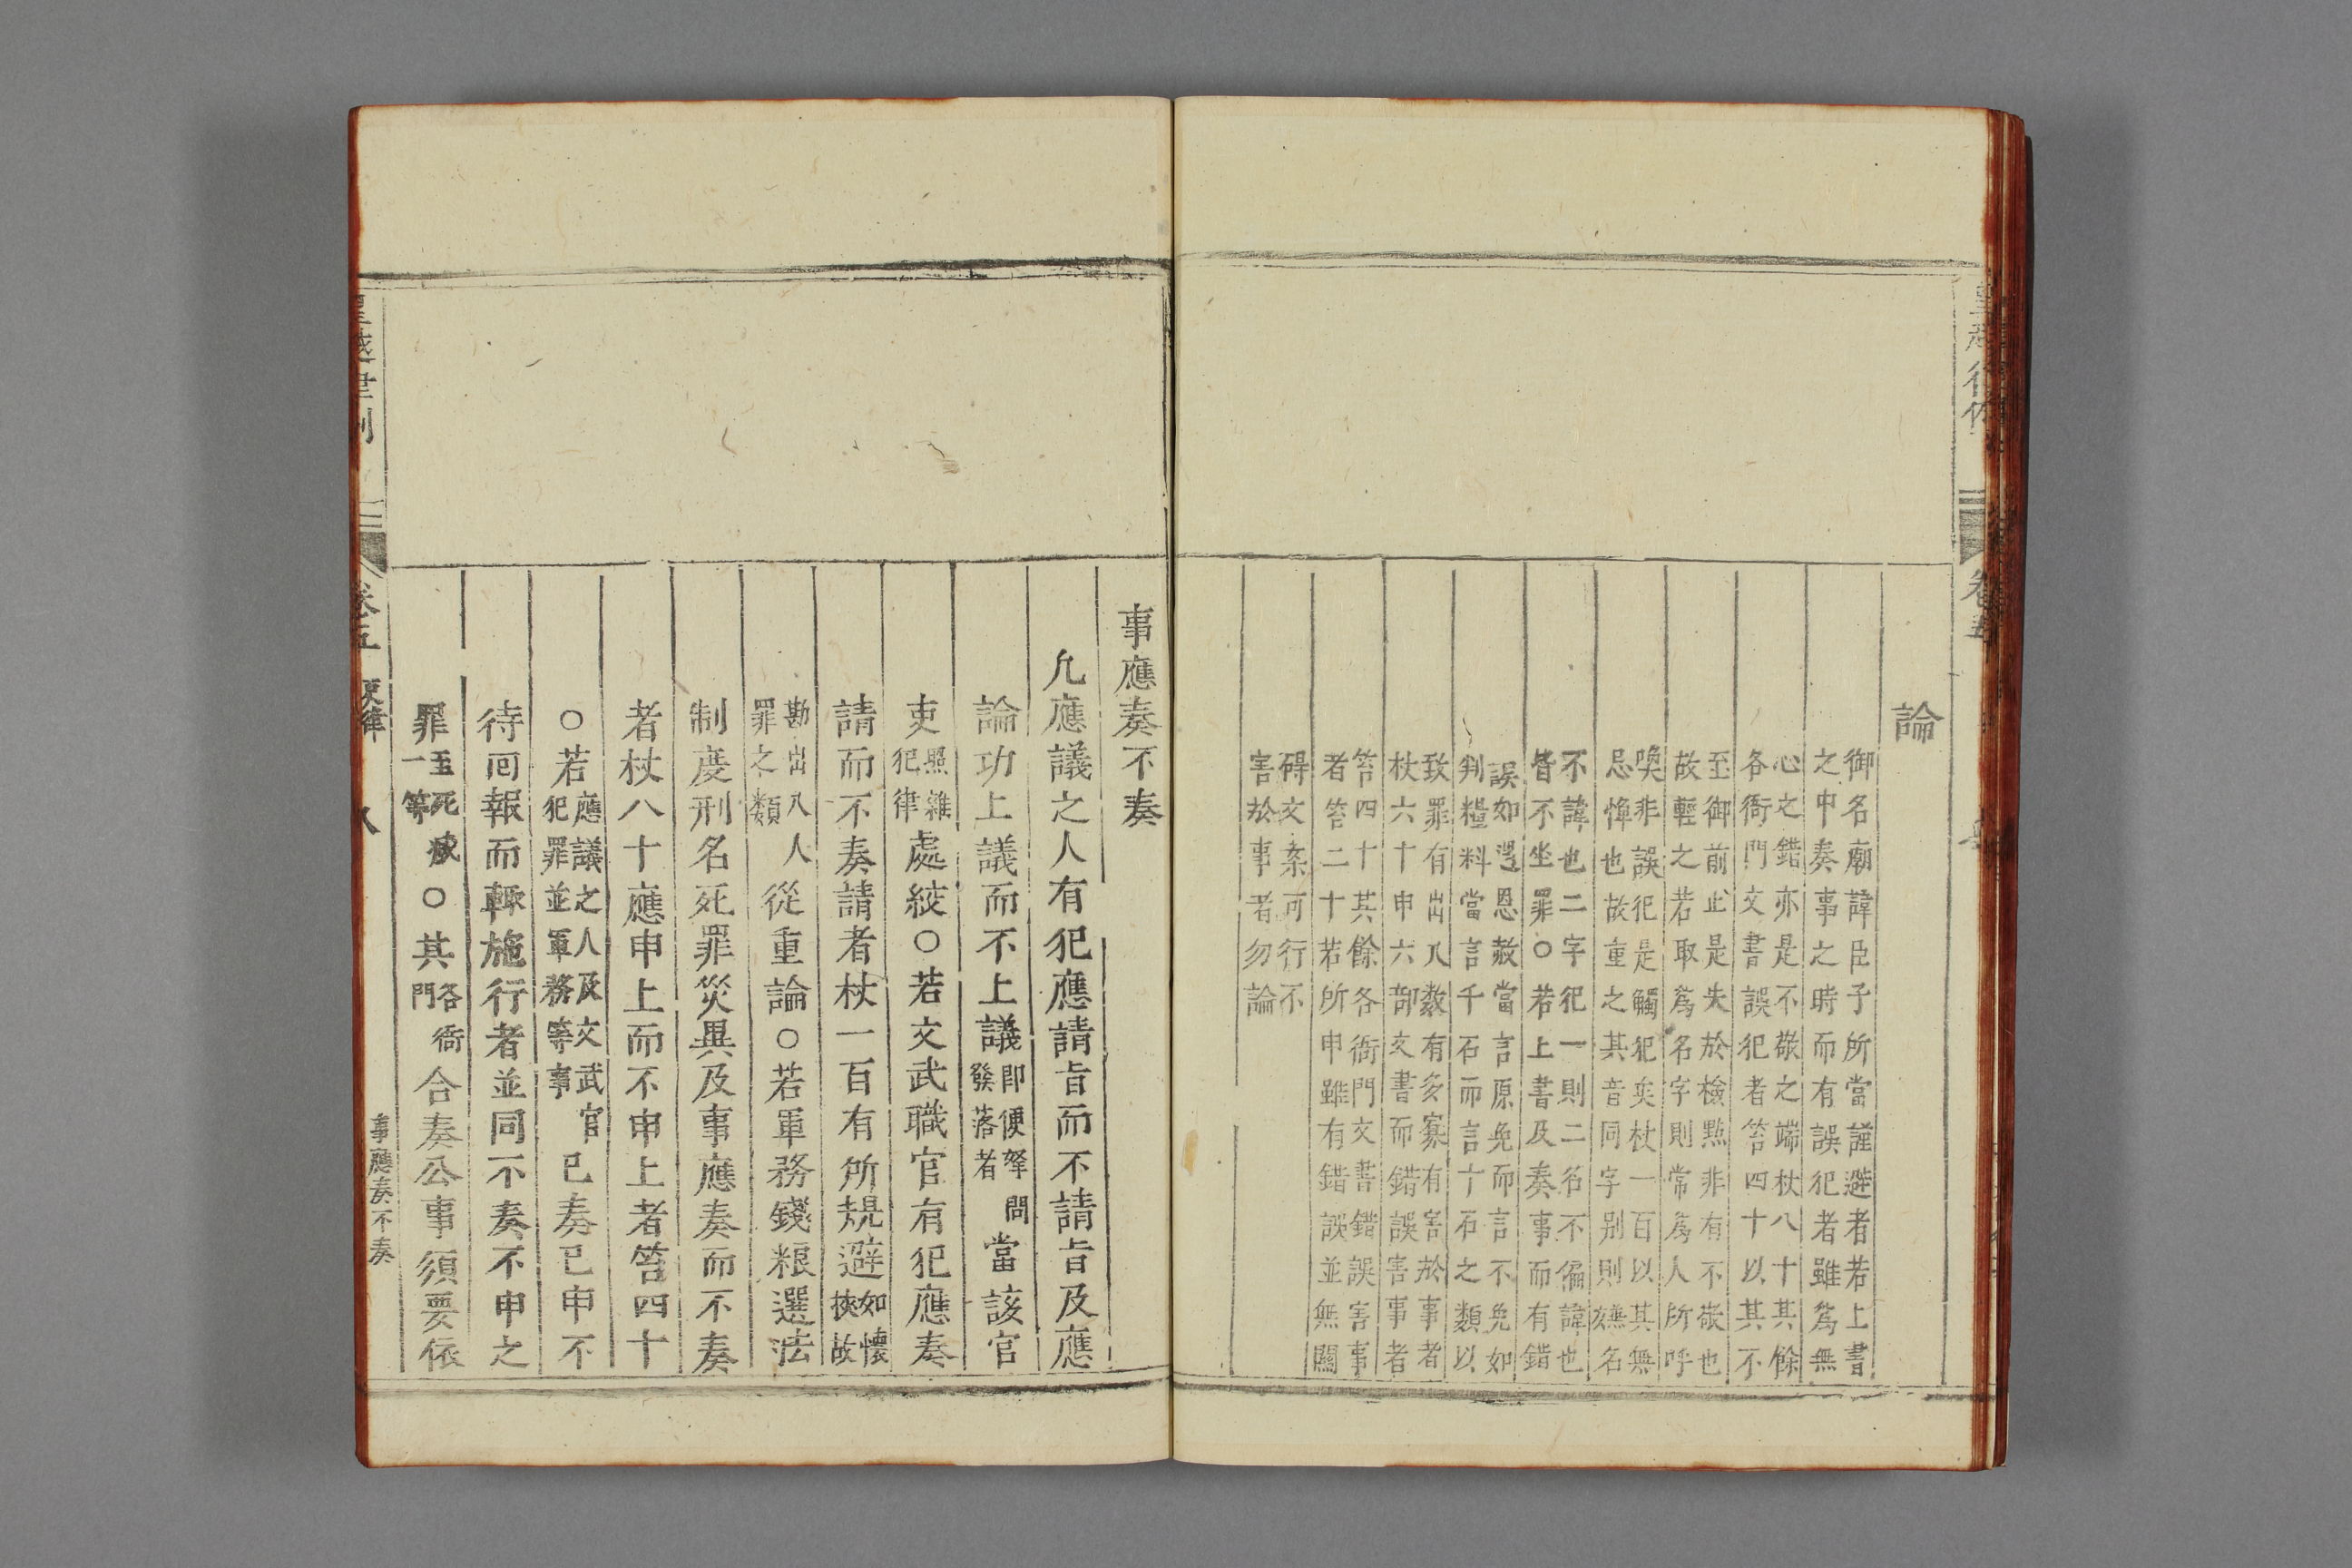 論
御名廟諱臣子所當謹避者若上書
之中奏事之時而有誤犯者雖爲無
心之錯亦是不敬之端杖八十其餘
各衙門文書誤犯者笞四十以其不
至御前止是失於檢㸃非有不敬也
故輕之若取爲名字則常爲人所呼
喚非誤犯是觸犯矣杖一百以其無
忌憚也故重之其音同字别則嫌名
不諱也二字犯一則二名不徧諱也
皆不坐罪○若上書及奏事而有錯
誤如遇恩赦當言原免而言不免如
判糧料當言千石而言十石之類以
致罪有出入數有多寡有害於事者
杖六十申六部文書而錯誤害事者
笞四十其餘各衙門文書錯誤害事
者笞二十若所申雖有錯誤並無關
碍文案可行不
害於事者勿論
事應奏不奏
凡應議之人有犯應請旨而不請旨及應
論功上議而不上議即便拏問發落者當該官
吏照雜犯律處絞○若文武職官有犯應奏
請而不奏請者杖一百有所規避如懷挾故
勘出入人罪之類從重論○若軍務錢粮選法
制度刑名死罪災異及事應奏而不奏
者杖八十應申上而不申上者笞四十
○若應議之人及文武官犯罪並軍務等事已奏已申不
待囘報而輒施行者並同不奏不申之
罪至死減一等○其各衙門合奏公事須要依
卷五
吏律
八
事應奏不奏